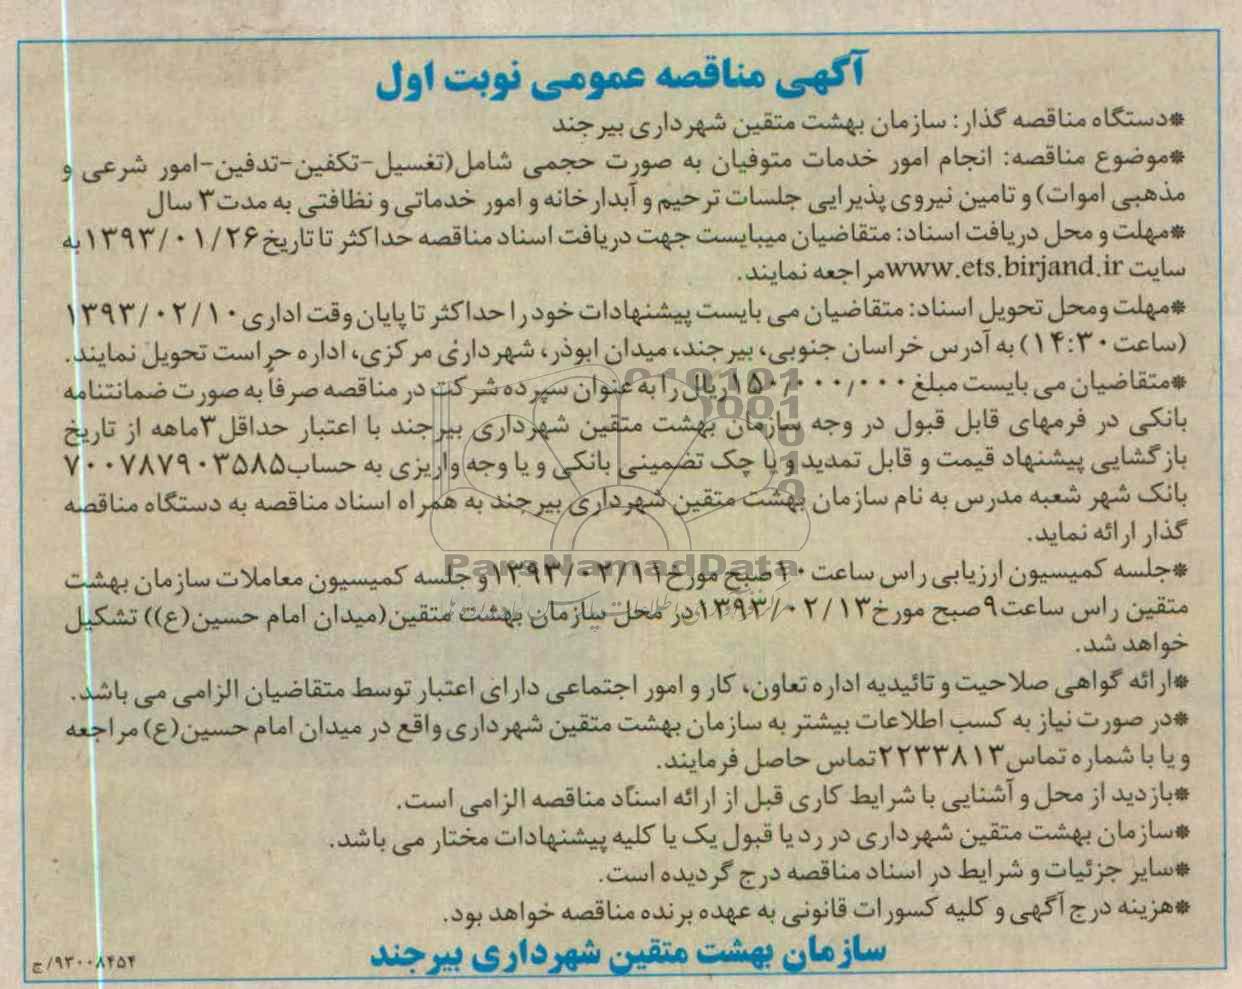 آگهی مناقصه عمومی نوبت اول
*دستگاه مناقصه گذار: سازمان بهشت متقین شهرداری بیرجند
*موضوع مناقصه: انجام امور خدمات متوفیان به صورت حجمی شامل(تغسیل-تکفین-تدفین-امور شرعی و
مذهبی اموات) و تامین نیروی پذیرایی جلسات ترحیم و آبدارخانه و امور خدماتی و نظافتی به مدت۳ سال
*مهلت و محل دریافت اسناد: متقاضیان میبایست جهت دریافت اسناد مناقصه حداکثر تا تاریخ۱۳۹۳/۰۱/۲۶به
سایت www.ets.birjand.irمراجعه نمایند.
*مهلت ومحل تحویل اسناد: متقاضیان می بایست پیشنهادات خود را حداکثر تا پایان وقت اداری۱۳۹۳/۰۲/۱۰
(ساعت۱۴:۳۰) به آدرس خراسان جنوبی، بیرجند، میدان ابوذر، شهرداری مرکزی، اداره حراست تحویل نمایند.
*متقاضیان می بایست مبلغ۱۵۰/۰۰۰/۰۰۰ریال را به عنوان سپرده شرکت در مناقصه صرفاً به صورت ضمانتنامه
بانکی در فرمهای قابل قبول در وجه سازمان بهشت متقین شهرداری بیرجند با اعتبار حداقل۳ماهه از تاریخ
بازگشایی پیشنهاد قیمت و قابل تمدید و یا چک تضمینی بانکی و یا وجه واریزی به حساب۷۰۰۷۸۷۹۰۳۵۸۵
بانک شهر شعبه مدرس به نام سازمان بهشت متقین شهرداری بیرجند به همراه اسناد مناقصه به دستگاه مناقصه
گذار ارائه نماید.
*جلسه کمیسیون ارزیابی راس ساعت ۱۰صبح مورخ۱۳۹۳/۰۲/۱۱و جلسه کمیسیون معاملات سازمان بهشت
متقین راس ساعت۹صبح مورخ۱۳۹۳/۰۲/۱۳در محل سازمان بهشت متقین(میدان امام حسین(ع)) تشکیل
خواهد شد.
*ارائه گواهی صلاحیت و تائیدیه اداره تعاون، کار و امور اجتماعی دارای اعتبار توسط متقاضیان الزامی می باشد.
*در صورت نیاز به کسب اطلاعات بیشتر به سازمان بهشت متقین شهرداری واقع در میدان امام حسین(ع) مراجعه
و یا با شماره تماس۲۲۳۳۸۱۳تماس حاصل فرمایند.
*بازدید از محل و آشنایی با شرایط کاری قبل از ارائه اسناد مناقصه الزامی است.
*سازمان بهشت متقین شهرداری در رد یا قبول یک یا کلیه پیشنهادات مختار می باشد.
*سایر جزئیات و شرایط در اسناد مناقصه درج گردیده است.
*هزینه درج آگهی و کلیه کسورات قانونی به عهده برنده مناقصه خواهد بود.
سازمان بهشت متقین شهرداری بیرجند
۹۳۰۰۸۴۵۴/ج
ParsNamadData